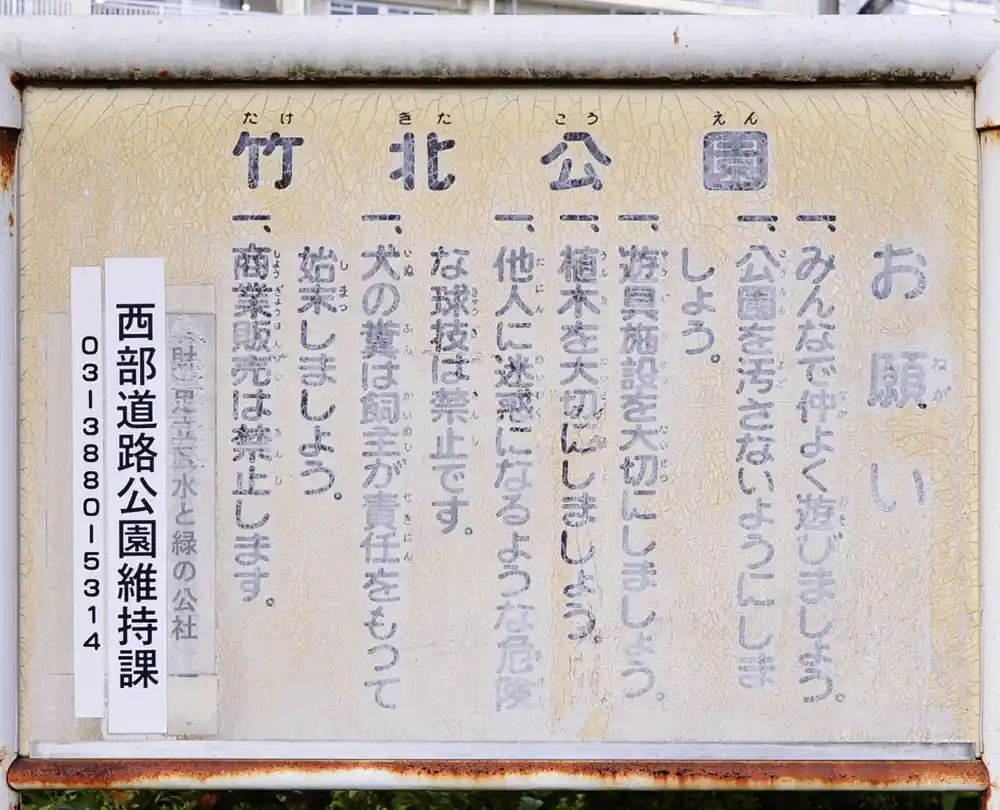 たけ きた こう えん
竹北公園
お願い
ねが
一、みんなで仲よく遊びましょう。
一、公園を汚さないようにしま
しょう。
一、遊具施設を大切にしましょう。
一、植木を大切にしましょう。
一、他人に迷惑になるような危険
な球技は禁止です。
一、犬の糞は飼主が責任をもって
始末しましょう。
一、商業販売は禁止します。
水と緑の公社
西部道路公園維持課
03-3880-5314